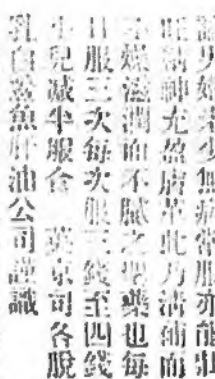 論男婦老少無病常服亦能壯
旺精神充盈膚革此乃清補而
不燥滋潤而不膩之聖藥也每
日服三次每次服三錢至四錢
小兒減半服食 英京司各脫
乳白鰵魚肝油公司謹識